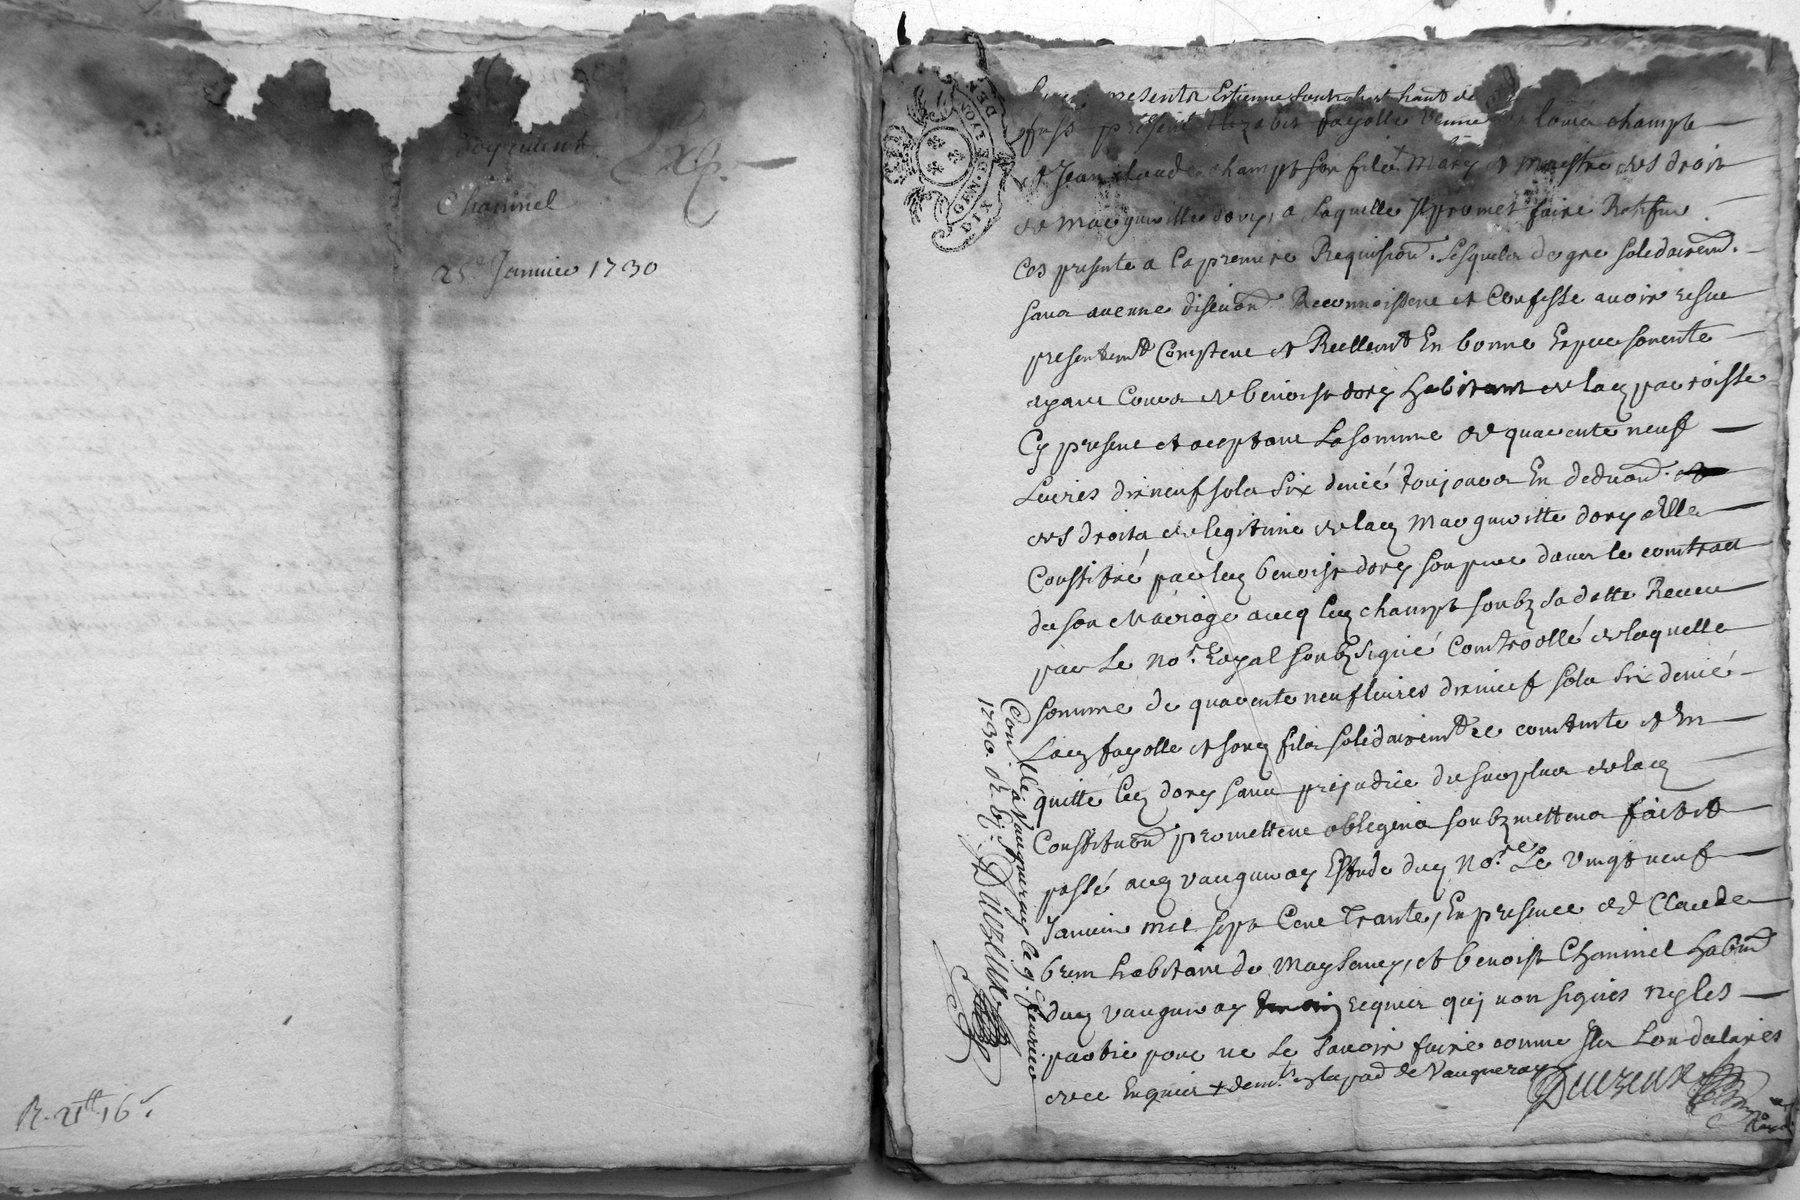 Chaninel
25e Janvier 1730
R. 21tt 16s
GEN. DE LYON
DIX DEN
presents Estienne
fust présent Elizabet fayolle veuve de Louis champt
et Jean claude champt son fils + Mary et Maistre des droit
de Margueritte dory, a laquelle Il promet faire Ratifier
Ces presente a la premiere Requision. Lesquels de gre solidairemt.
sans aucune discuon. Reconnoissent et Confesse avoir reçue
presentemt Comptent et Reellemt En bonne Espece sonente
ayant Cours de benoist dory habitant de lad paroisse
Cy present et aceptant La somme de quarente neuf
Livres dix neuf sols six denié toujours En deduon.
des droits de legitime de lad Margueritte dory a Elle
Constitué par led benoist dory son pere dans le contract
de son Mariage avecq led champt soubz sa datte Receu
par Le nore. Royal soubzsigné Controollé de laquelle
somme de quarente neuf livres dix neuf sols six denié
Lad fayolle et sond fils solidairemt ce contente et En
quitté led dory sans prejudice du surplus de lad
Constituon promettent obligens soubzmettens fait et
passé aud vaugneray Estude dud nore. Le vingt neuf
Janvier mil sept Cent trante, En presence de Claude
brun habitant de Maysemy, et benoist Chaninel habitt
dud vaugneray requis quj non signés ny les
partie pour ne le savoir faire comme Ils Lon declarés
de ce Enquis + demts En la pad de Vaugneray
Duvzeux
Conllé a Vaugneray le 9. fevrier
1730. R. Vj s. Duvzeux